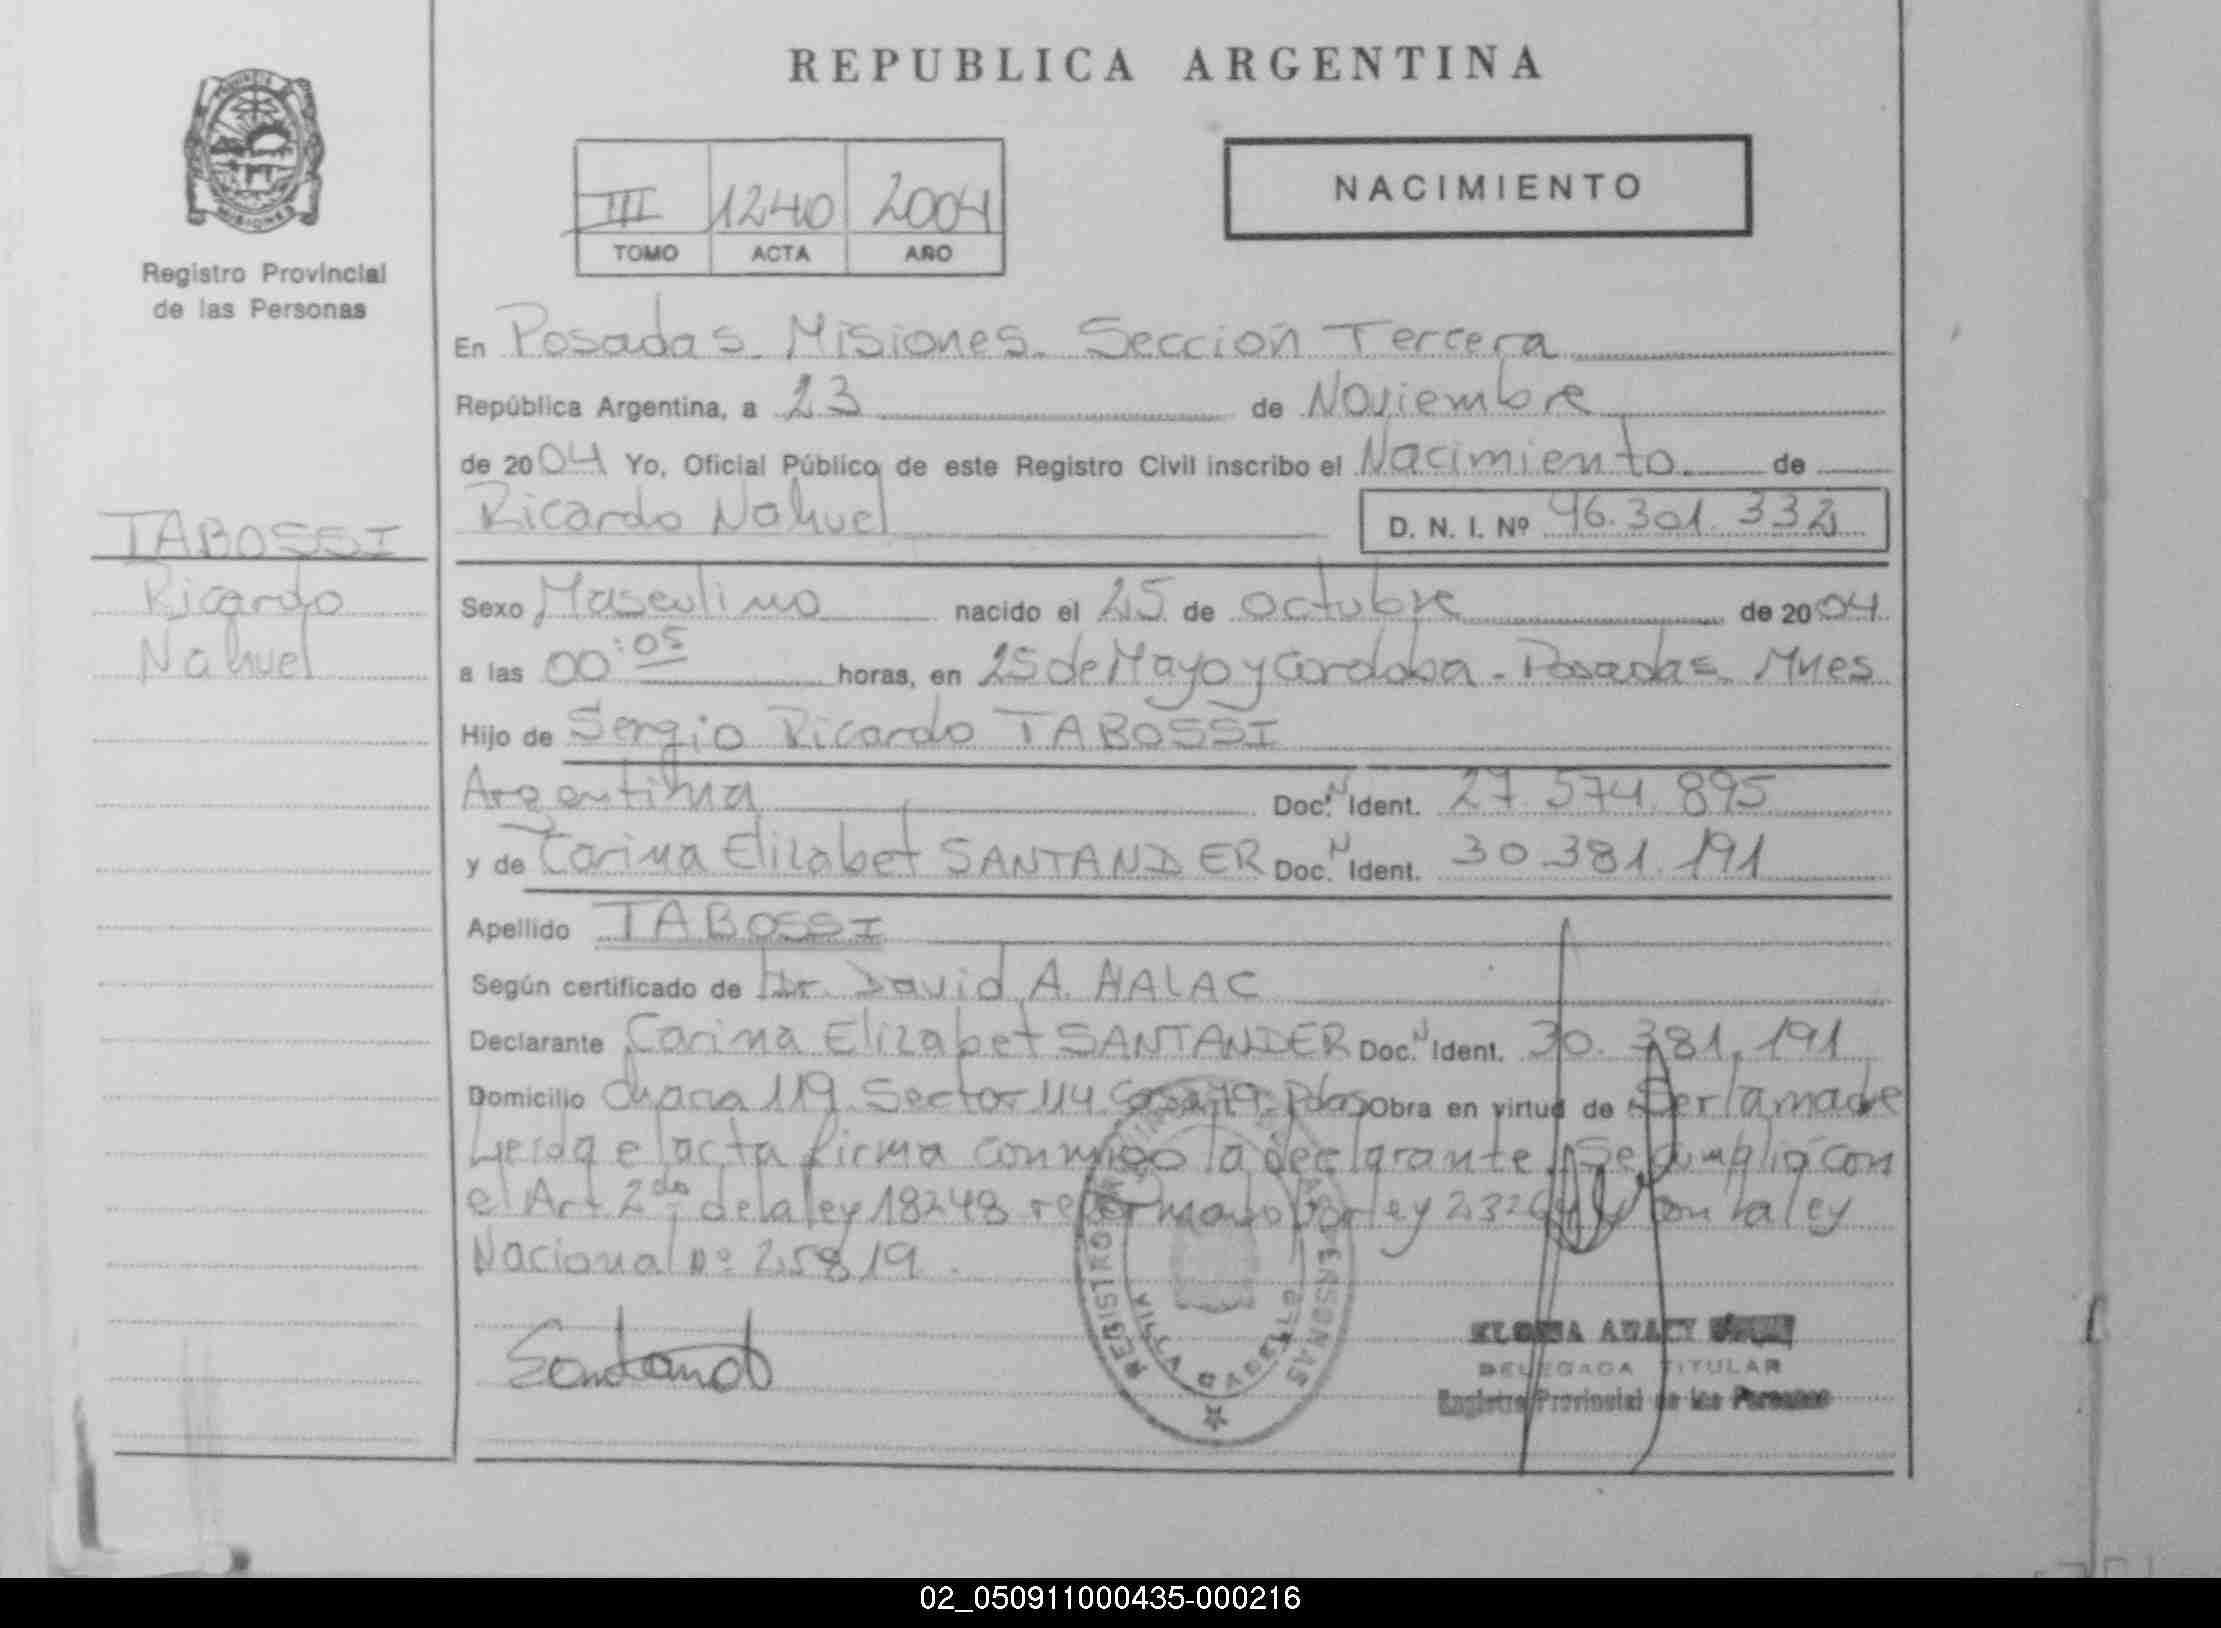 REPUBLICA ARGENTINA
PROVINCIA
MISIONES
Registro Provincial
de las Personas
III 1240 2004
TOMO ACTA AÑO
NACIMIENTO
En Posadas. Misiones. Sección Tercera
República Argentina, a 23 de Noviembre
de 2004 Yo, Oficial Público de este Registro Civil inscribo el Nacimiento de
Ricardo Nahuel D. N. I. Nº 46.301.332
TABOSSI
Ricardo
Nahuel
Sexo Masculino nacido el 25 de octubre de 2004
a las 00:05 horas, en 25 de Mayo y Cordoba - Posadas Mnes
Hijo de Sergio Ricardo TABOSSI
Argentina Doc. N Ident. 27.574.895
y de Carina Elizabet SANTANDER Doc. N Ident. 30.381.191
Apellido TABOSSI
Según certificado de Dr. David A. HALAC
Declarante Carina Elizabet SANTANDER Doc. N Ident. 30.381.191
Domicilio Chacra 119 Sector 114 Casa Pdas Obra en virtud de Ser la madre
Leida el acta firma conmigo la declarante. Se cumplió con
el Art 2do de la ley 18248 reformado por ley 23264 y con la ley
Nacional nº 25819.
Santand
REGISTRO PROVINCIAL DE LAS PERSONAS
VILLA CABELLO
DELEGADA TITULAR
Registro Provincial de las Personas
02_050911000435-000216